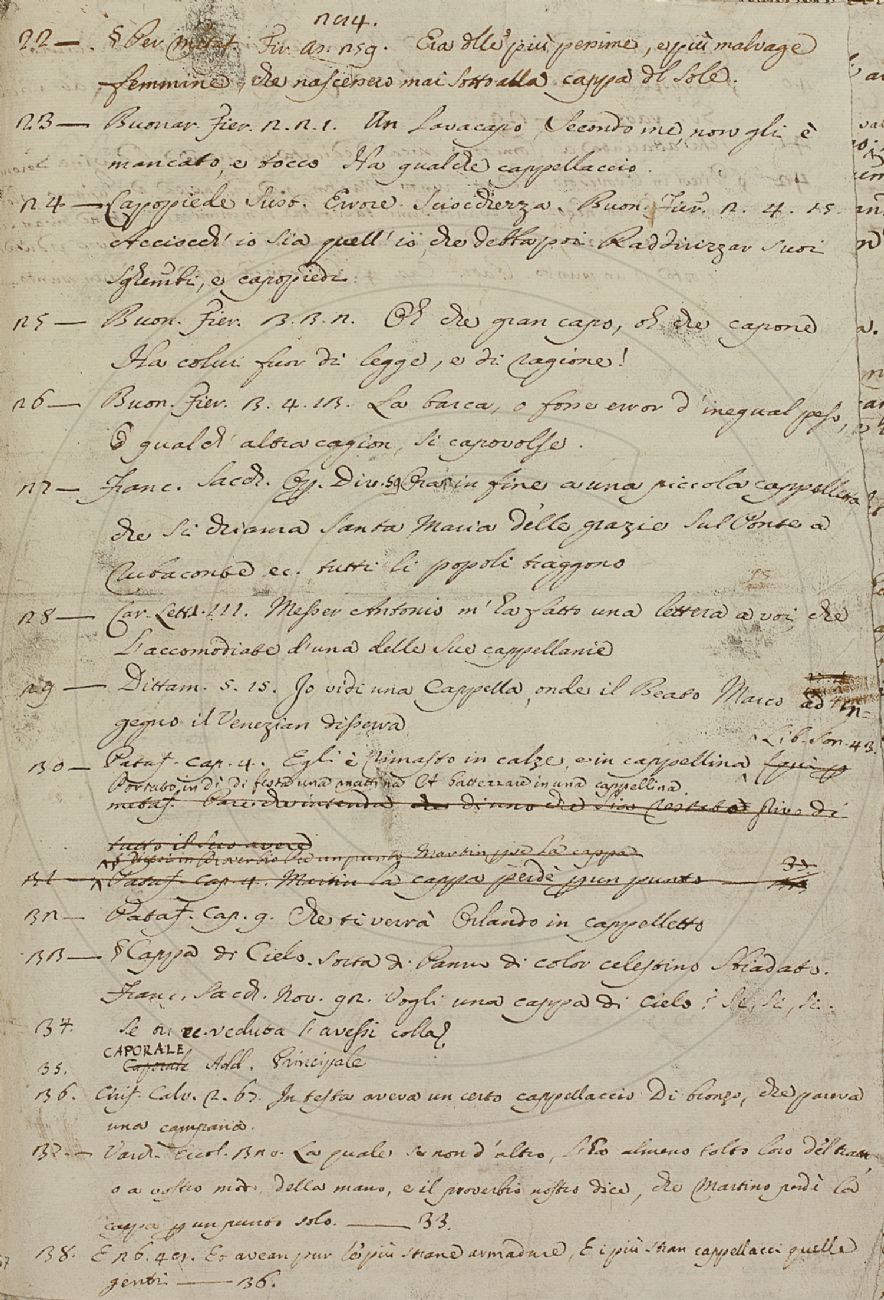 22 — § Per metaf. Fir. As. 259. Era delle più pessime, e più malvage
femmine, che nascessero mai sotto alla cappa del Sole.
23 — Buonar. Fier. 2. 2. 1. Un lavacapo, secondo me, non gli è
mancato, e tocco Ha qualche cappellaccio.
24 — Capopiede Sust. Errore Sciocchezza. Buon. Fier. 2. 4. 15.
Acciocch' io sia quell' io, che debba poi Raddirizzar suoi
Sghembi, e capopiedi
25 — Buon. Fier. 3. 3. 2. Oh che gran capo, oh che capone
Ha colui fuor di legge, e di ragione!
26 — Buon. Fier. 3. 4. 13. La barca, o fosse error d' inegual peso,
O qualch' altra cagion, si capovolse.
27 — Franc. Sacch. Op. Div. in fine a una piccola cappelletta
che si chiama Santa Maria delle grazie sul Ponte a
Rubaconte ec. tutti li popoli traggono
28 — Car. Lett. 111. Messer Antonio m' ha fatto una lettera a voi, che
l'accomodiate d'una delle sue cappellanie
29 — Dittam. 5. 15. Io vidi una Cappella, onde il Beato Marco ad In-
gegno il Venezian disserra
Lib. Son. 43.
30 — Pataf. Cap. 4. Egli è rimasto in calze, e in cappellina
Portato in dì di festa una mattina A battezzare in una cappellina.
metaf. intende di uno che sia restato privo di
tutto il suo avere
un punto Martin perse la cappa
31 — Pataf. Cap. 4. Martin la cappa perdè per un punto — 33
32 — Pataf. Cap. 9. Che ti verrà Orlando in cappelletto
33 — § Cappa di Cielo. Sorta di Panno di color celestino sbiadato.
Franc. Sacch. Nov. 92. Vogli una cappa di cielo? Sì, sì, sì.
34 Se veduta l'avessi colla
CAPORALE
35. Caporale Add. Principale
36. Ciriff. Calv. 2. 67. In testa aveva un certo cappellaccio Di bronzo, che pareva
una campana.
37 — Varch. Ercol. 320. La quale se non d'altro, l'ha almeno tolto loro del tratto,
o a vostro modo, della mano, e il proverbio nostro dice, che Martino perdè la
cappa per un punto solo. — 33.
38. E avean pur le più strane armadure, E i più stran cappellacci quelle
genti — 36.